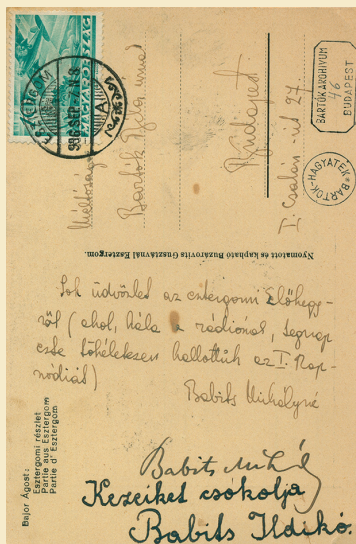 ESZTERGOM
MAGYAR
Méltóságos
Bartók Béla úrnak
Budapest
I. Csalán-út 27
BARTÓK ARCHIVUM
46
BUDAPEST
BARTÓK-HAGYATÉK
Nyomatott és kapható Buzárovits Gusztávnál Esztergom.
Sok üdvözlet az esztergomi Előhegy-
ről (ahol, hála a rádiónak, tegnap
este tökéletesen hallottuk az I. Rap-
szódiát)
Babits Mihályné
Babits Mihály
Kezeiket csókolja
Babits Ildikó.
Bajor Ágost:
Esztergomi részlet
Partie aus Esztergom
Partie d'Esztergom